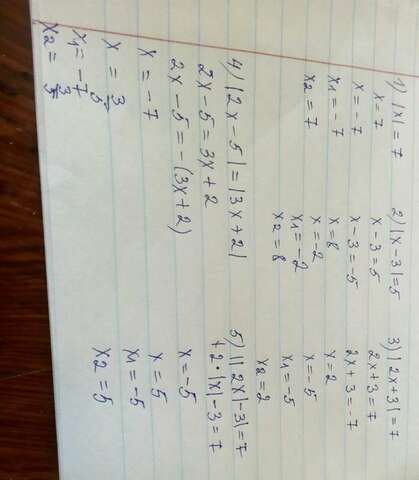 1) |x| = 7
x = 7
x = -7
x1 = -7
x2 = 7
2) |x - 3| = 5
x - 3 = 5
x - 3 = -5
x = 8
x = -2
x1 = -2
x2 = 8
3) |2x + 3| = 7
2x + 3 = 7
2x + 3 = -7
x = 2
x = -5
x1 = -5
x2 = 2
4) |2x - 5| = |3x + 2|
2x - 5 = 3x + 2
2x - 5 = -(3x + 2)
x = -7
x = 3/5
x1 = -7
x2 = 3/5
5) ||2x| - 3| = 7
+2·|x| - 3 = 7
x = -5
x = 5
x1 = -5
x2 = 5